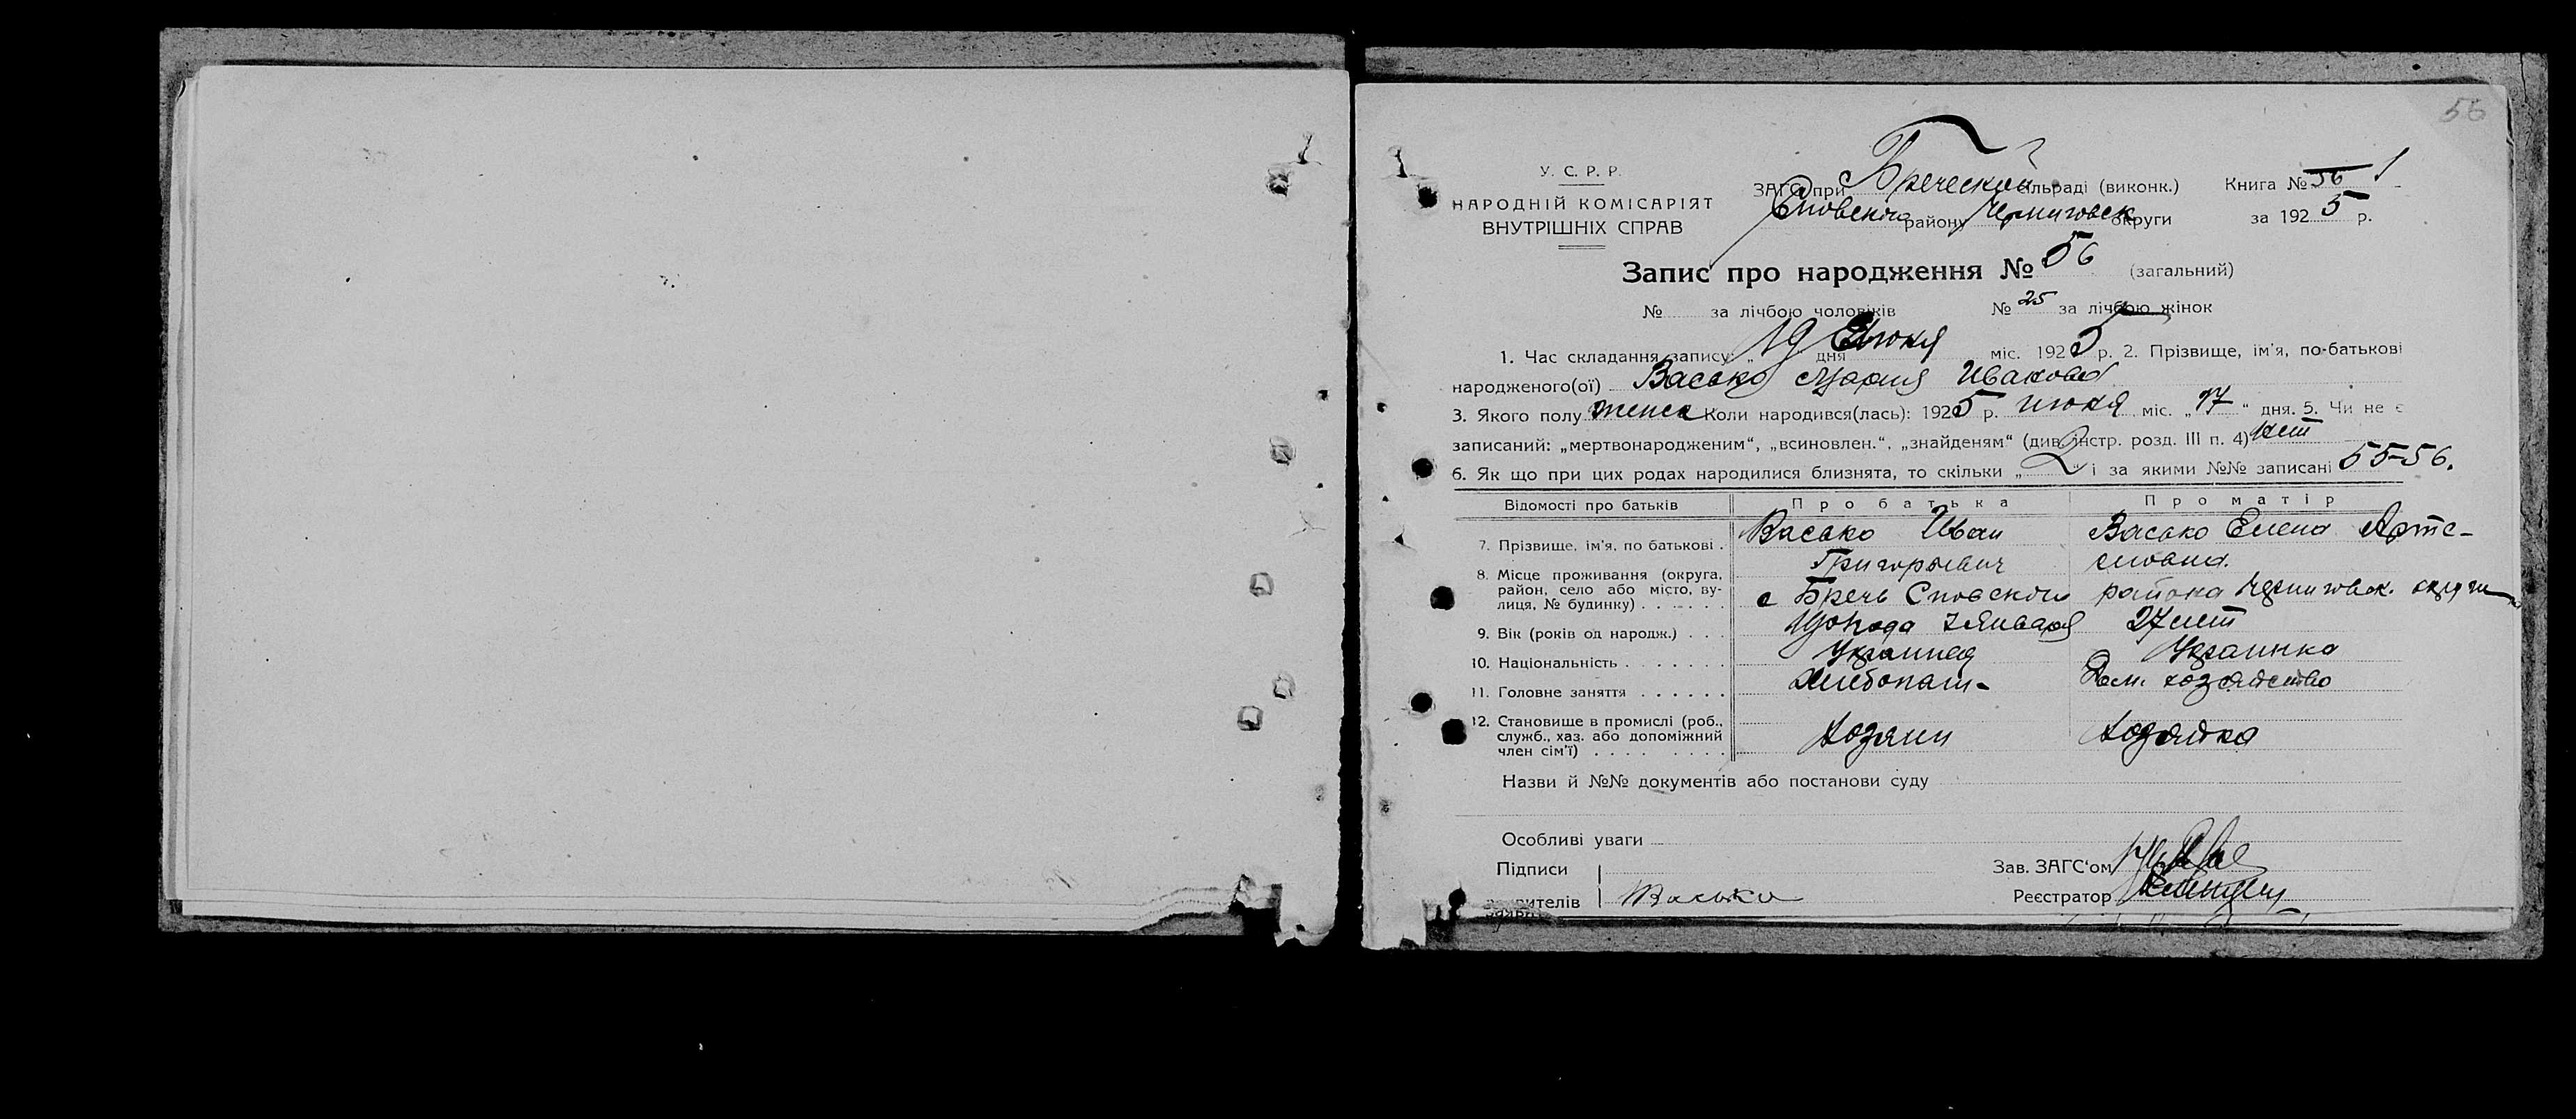 56
У. С. Р. Р.
НАРОДНІЙ КОМІСАРІЯТ
ВНУТРІШНІХ СПРАВ
ЗАГС при Бреческой сільраді (виконк.)
Сновского району Черниговск округи
Книга № 56 1
за 1925 р.
Запис про народження № 56 (загальний)
№ за лічбою чоловіків № 25 за лічбою жінок
1. Час складання запису: „19 дня Июня міс. 1925 р. 2. Прізвище, ім'я, по-батькові
народженого(ої) Васько Мария Иванова
3. Якого полу женск Коли народився(лась): 1925 р. июня міс. „17“ дня. 5. Чи не є
записаний: „мертвонародженим“, „всиновлен.“, „знайденям“ (див. інстр. розд. III п. 4) нет
6. Як що при цих родах народилися близнята, то скільки „2“ і за якими №№ записані 55-56.
Відомості про батьків Про батька Про матір
7. Прізвище, ім'я, по батькові . Васько Иван Григорьевич Васько Елена
8. Місце проживання (округа, район, село або місто, вулиця, № будинку) . . . . . . с Бречь Сновского района Черниговск. округи
9. Вік (років од народж.) . . . Января 27 лет
10. Національність . . . . . . . Украинец Украинка
11. Головне заняття . . . . . . Хлебопаш- Дом. хозяйство
12. Становище в промислі (роб., служб., хаз. або допоміжний член сім'ї) . . . . . . . . Хозяин Хозяйка
Назви й №№ документів або постанови суду
Особливі уваги
Підписи
Зав. ЗАГС'ом
Васько
Реєстратор